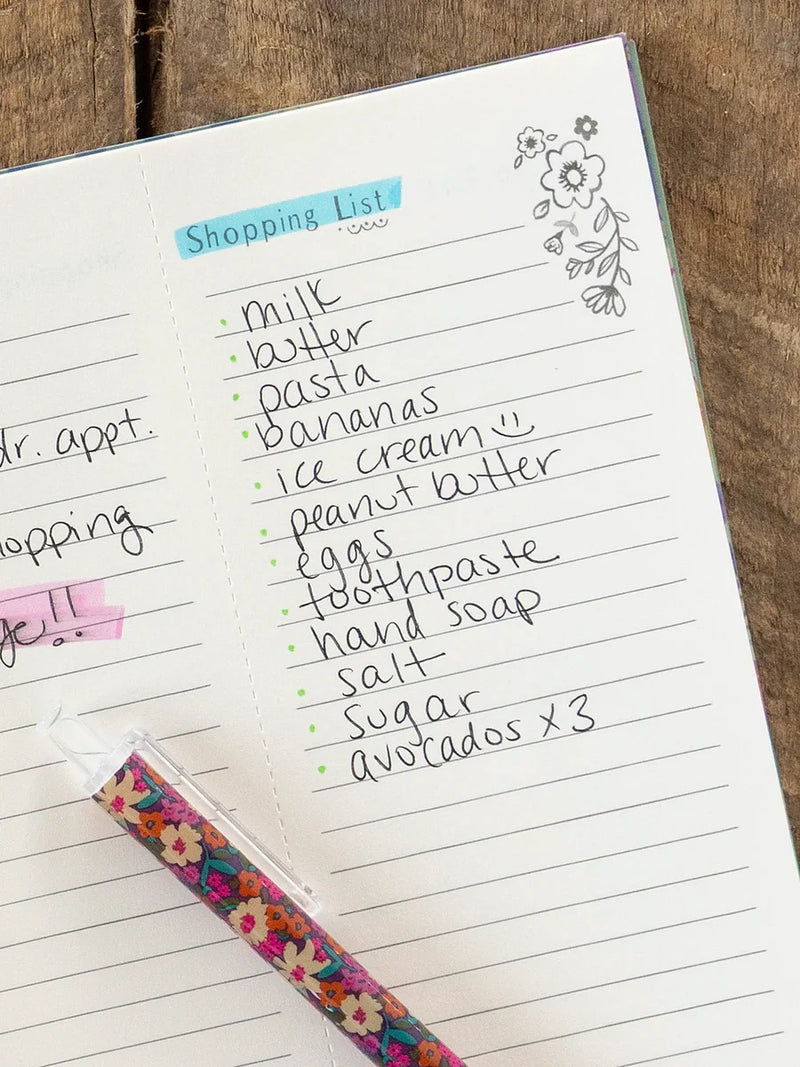 Shopping List
milk
butter
pasta
bananas
ice cream
peanut butter
eggs
toothpaste
hand soap
salt
sugar
avocados x 3
dr. appt.